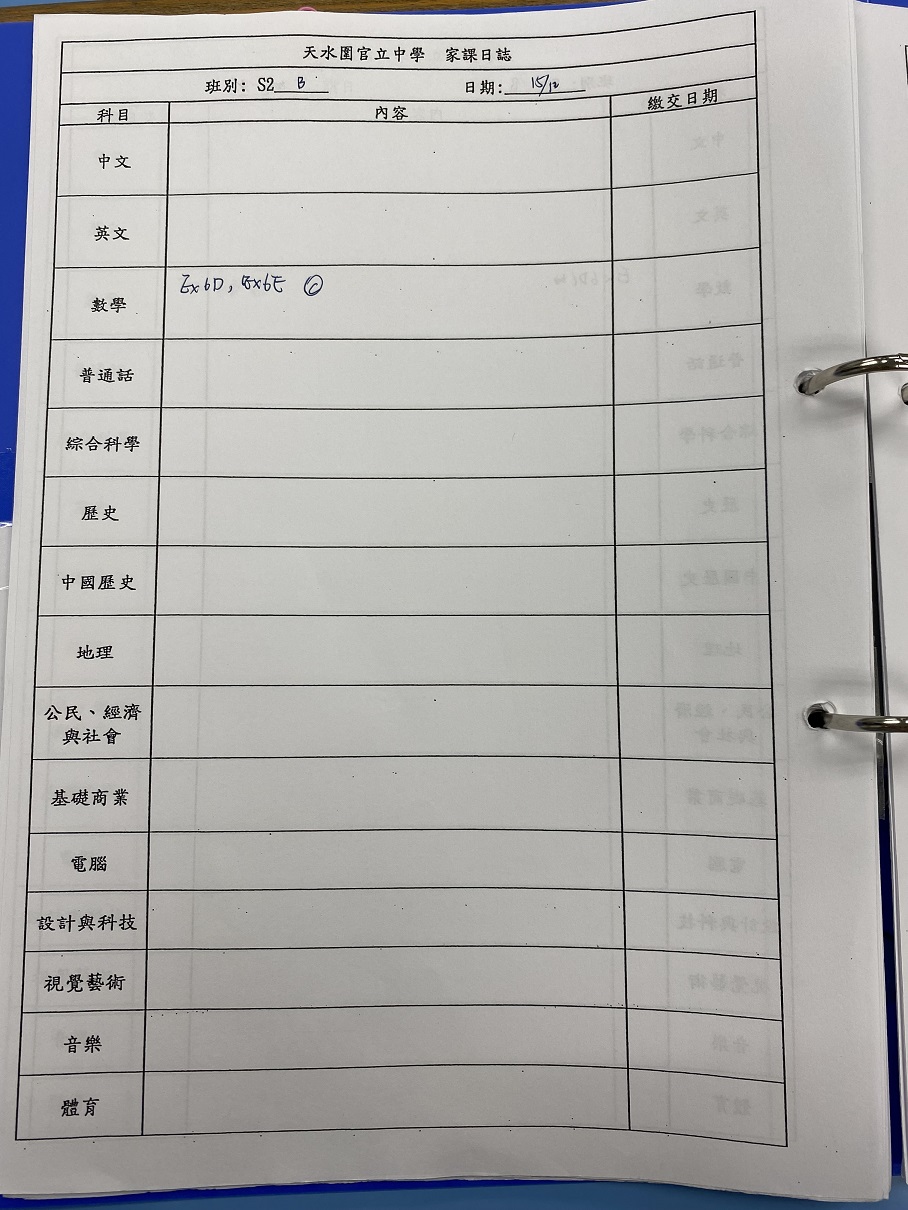 天水圍官立中學 家課日誌
班別: S2 B 日期: 15/12
科目 內容 繳交日期
中文
英文
數學 Ex6D, Ex6E Ⓒ
普通話
綜合科學
歷史
中國歷史
地理
公民、經濟
與社會
基礎商業
電腦
設計與科技
視覺藝術
音樂
體育